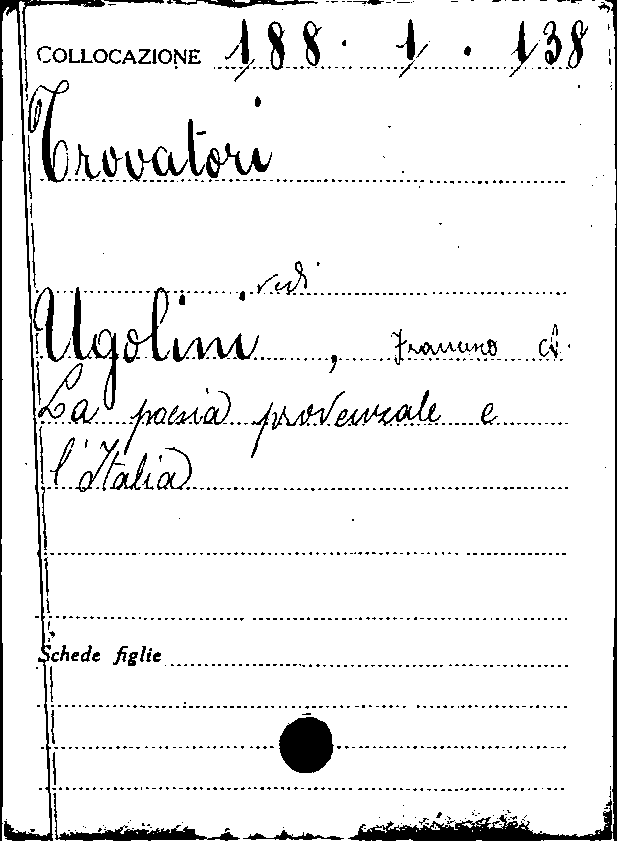 COLLOCAZIONE 188. 1. 138
Trovatori
vedi
Ugolini, Francesco A.
La poesia provenzale e
l'Italia
Schede figlie